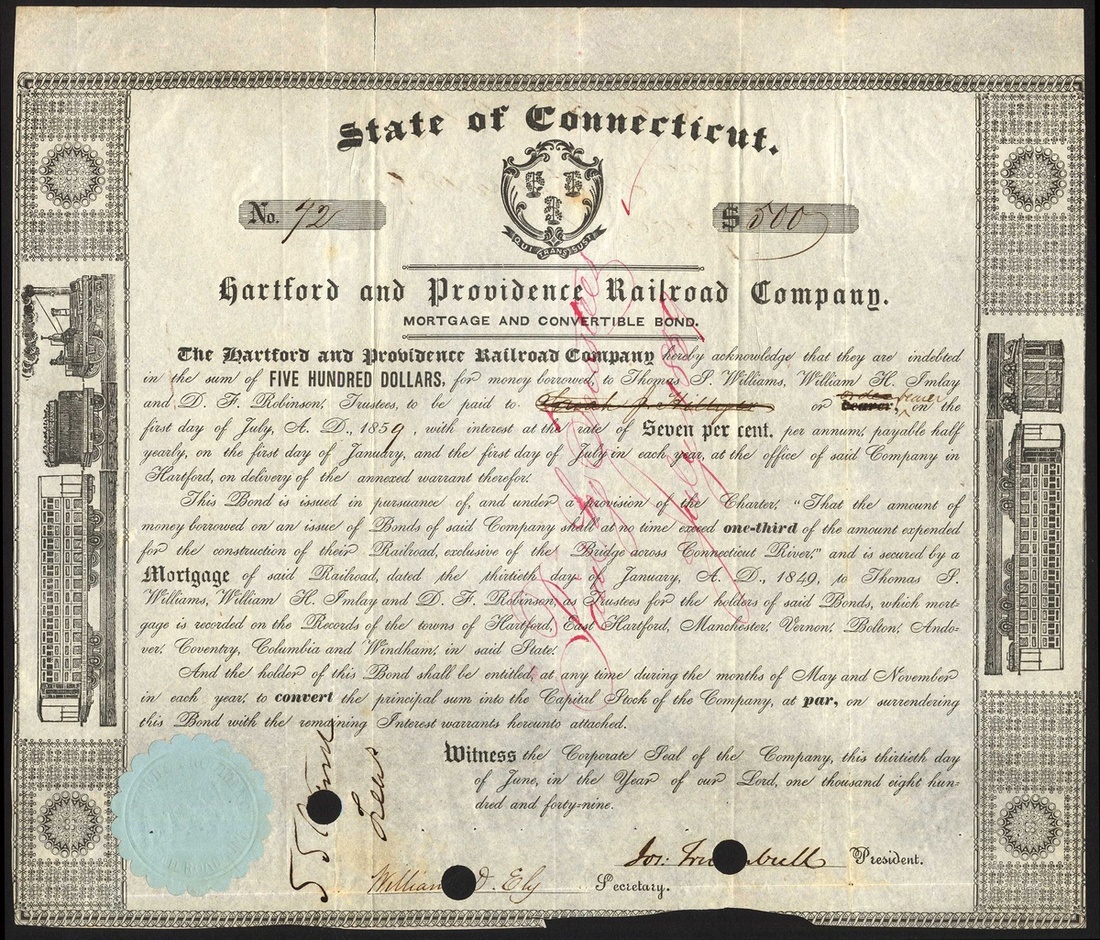 State of Connecticut.
No. 72
$ 500
QUI TRANS SUST
Hartford and Providence Railroad Company.
MORTGAGE AND CONVERTIBLE BOND.
The Hartford and Providence Railroad Company hereby acknowledge that they are indebted
in the sum of FIVE HUNDRED DOLLARS, for money borrowed, to Thomas S. Williams, William H. Imlay
and D. F. Robinson, Trustees, to be paid to or bearer, on the
first day of July, A. D., 1859, with interest at the rate of Seven per cent. per annum, payable half
yearly, on the first day of January, and the first day of July in each year, at the office of said Company in
Hartford, on delivery of the annexed warrant therefor.
This Bond is issued in pursuance of, and under a provision of the Charter, "That the amount of
money borrowed on an issue of Bonds of said Company shall at no time exceed one-third of the amount expended
for the construction of their Railroad, exclusive of the Bridge across Connecticut River," and is secured by a
Mortgage of said Railroad, dated the thirtieth day of January, A. D., 1849, to Thomas S.
Williams, William H. Imlay and D. F. Robinson, as Trustees for the holders of said Bonds, which mort-
gage is recorded on the Records of the towns of Hartford, East Hartford, Manchester, Vernon, Bolton, Ando-
ver, Coventry, Columbia and Windham, in said State.
And the holder of this Bond shall be entitled, at any time during the months of May and November
in each year, to convert the principal sum into the Capital Stock of the Company, at par, on surrendering
this Bond with the remaining Interest warrants hereunto attached.
Witness the Corporate Seal of the Company, this thirtieth day
of June, in the Year of our Lord, one thousand eight hun-
dred and forty-nine.
Jos. Trumbull President.
William D. Ely Secretary.